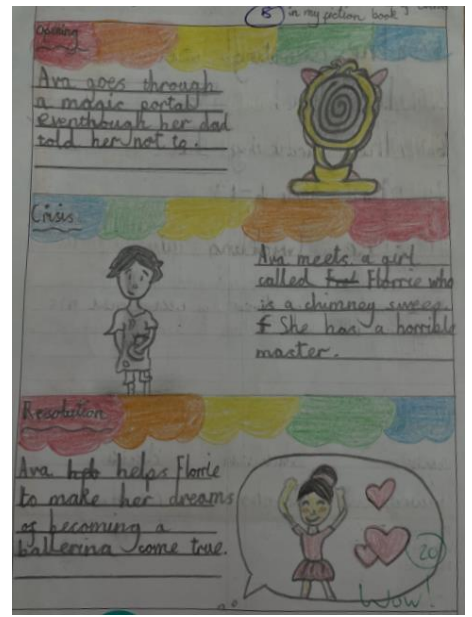 B in my fiction book
Opening
Ava goes through
a magic portal
eventhough her dad
told her not to.
Crisis
Ava meets a girl
called Florrie who
is a chimney sweep.
She has a horrible
master.
Resolution
Ava helps Florrie
to make her dreams
of becoming a
ballerina come true.
20
Wow!